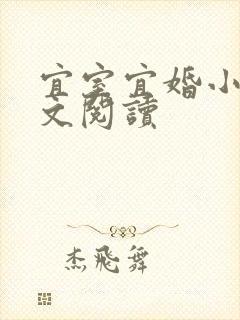 宜室宜婚小
文閱讀
杰飛舞